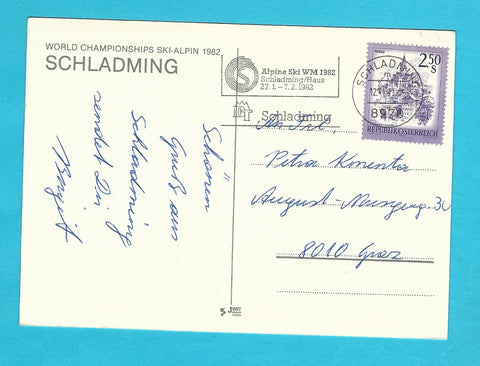 WORLD CHAMPIONSHIPS SKI-ALPIN 1982
SCHLADMING
Alpine Ski WM 1982
Schladming/Haus
22.1. – 7.2. 1982
Schladming
SCHLADMING
8970
2,50
S
REPUBLIK ÖSTERREICH
Schönen
Gruß aus
Schladming
sendet Dir
Birgit
Petra
August-
8010 Graz